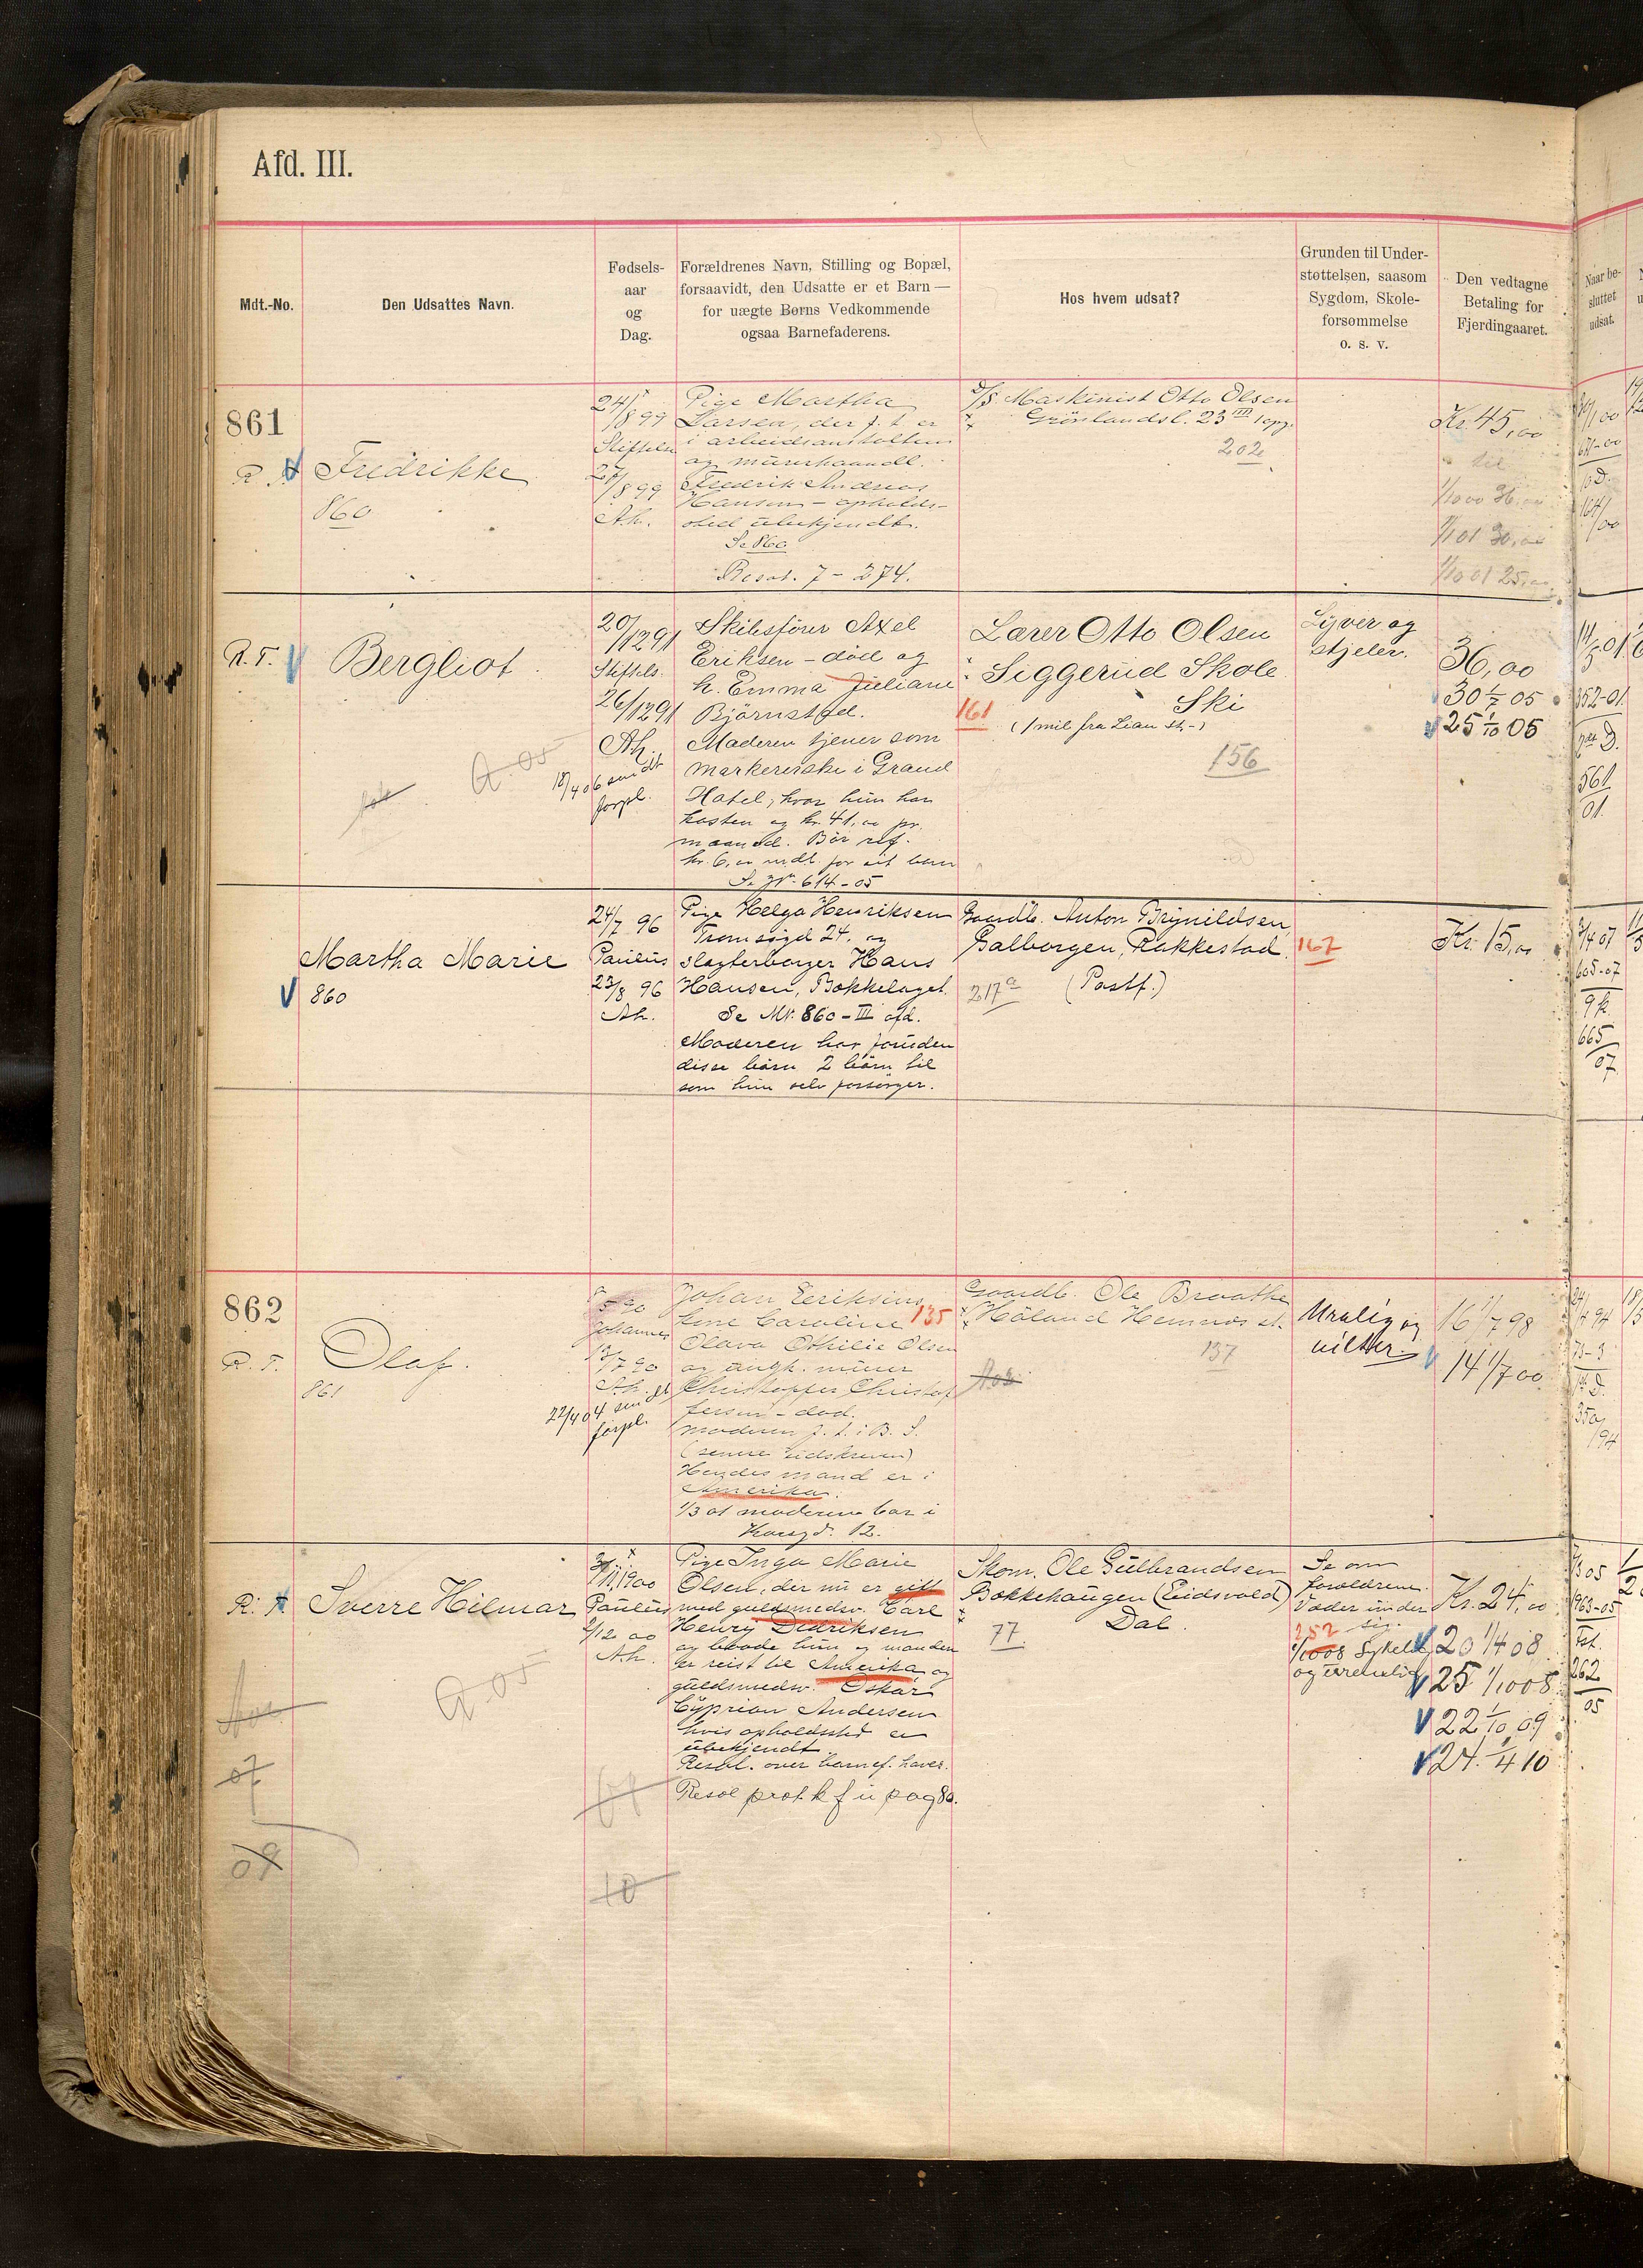 Afd. III.
Mdt.-No.
Den Udsattes Navn.
Fødsels-
aar
og
Dag.
Forældrenes Navn, Stilling og Bopæl,
forsaavidt, den Udsatte er et Barn —
for uægte Børns Vedkommende
ogsaa Barnefaderens.
Hos hvem udsat?
Grunden til Under-
støttelsen, saasom
Sygdom, Skole-
forsømmelse
o. s. v.
Den vedtagne
Betaling for
Fjerdingaaret.
Naar be-
sluttet
udsat.
861
Fredrikke
860
24/8 99
Stiftelsen
27/8 99
Ak.
Pige Martha
Larsen, der f. t. er
i arbeidsanstalten
og murerhaandl.
Fredrik Andreas
Hansen - opholds-
sted ubekjendt.
Se 860
Resol. 7 - 274.
Maskinist Otto Olsen
Grönlandsl. 23 III opg.
202
Kr. 45,00
til
1/10 00 36,00
1/1 01 30,00
1/10 01 25,00
R. T.
Bergliot
20/12 91
Stiftels.
26/12 91
Ak.
18/4 06 sendt
forpl.
A. 05
Skibsförer Axel
Eriksen - död og
h. Emma Juliane
Björnstad.
Moderen tjener som
markererske i Grand
Hotel, hvor hun har
kosten og kr. 41,00 pr.
maaned. Bör ref.
kr. 6,00 mdl. for sit barn
Se Nr. 614 - 05
Lærer Otto Olsen
Siggerud Skole
Ski
161
(1 mil fra Lian st.)
156
Lyver og
stjeler.
36,00
30 1/7 05
25 1/10 05
352-01
561
01.
Martha Marie
860
24/7 96
Paulus
23/8 96
Ak.
Pige Helga Henriksen
Tromsögd 24. og
slagterborger Hans
Hansen, Bakkelaget.
Se Nr. 860 - III afd.
Moderen har foruden
disse börn 2 börn til
som hun selv forsörger.
Gaardb. Anton Brynildsen,
Galborgen, Rakkestad.
217a
(Postf.)
167
Kr. 15,00
3/4 07
605-07
665
07
862
R. T.
Olaf.
861
Johannes
13/7 90
Ak.
22/4 04 sendt
forpl.
Johan Eriksens
Lene Caroline
135
Olava Othilie Olsen
og murer
Christopher Christof
fersen - död.
moderen f. t. i B. S.
(senere udskreven)
Hendes mand er i
Amerika.
1/3 01 moderen bor i
Korsgd. 12.
Gaardb. Ole Braathe
Höland Hemnes st.
137
Urolig og
vilter.
16 1/7 98
14 1/7 00
Sverre Hilmar
A. 05
07
09
Paulus
2/12 00
Ak.
10
Pige Inga Marie
Olsen, der nu er gift
med guldsmedsv. Carl
Henry Didriksen
og baade hun og manden
er reist til Amerika og
guldsmedsv. Oskar
Cyprian Andersen
hvis opholdssted er
ubekjendt.
Resol. over barnef. haves.
Resol prot. k f u pag 80.
Skom. Ole Gulbrandsen
Bakkehaugen (Eidsvold)
Dal.
77.
Se om
forældrene.
Væder under
sig.
252
1/10 08 Sykelig
og urenslig
Kr. 24,00
20 1/4 08
25 1/10 08
22 1/10 09
24. 1/4 10
963-05
262
05